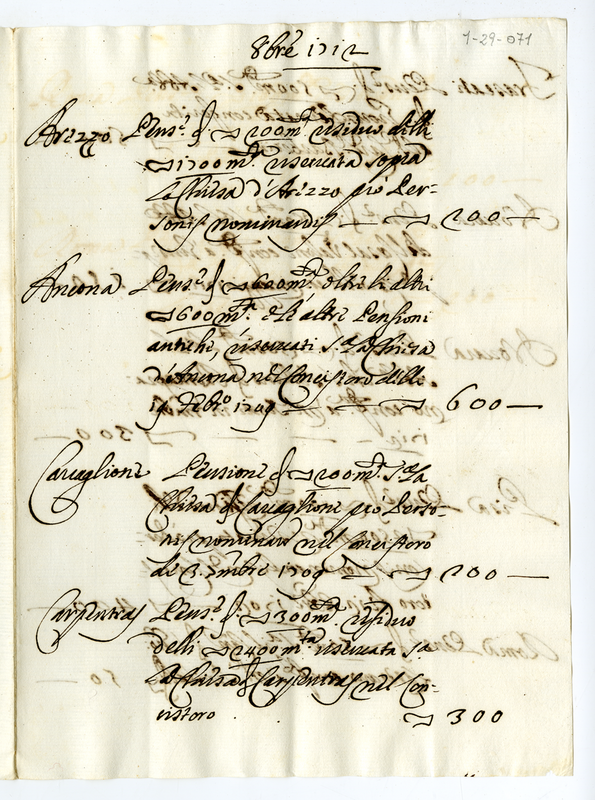 1-29-071
8bre 1712
Arezzo Pens.e di ▽ 200 m.ta residuo delli
▽ 1700 m.ta riservata sopra
la Chiesa d'Arezzo pro Per-
sonis nominandis — ▽ 200 —
Ancona Pens.e di ▽ 600 m.ta oltre li altri
▽ 600 m.ta e le altre Pensioni
antiche, riservati s.a la Chiesa
d'Ancona nel Concistoro delli
19 Febro 1709 — ▽ 600 —
Cavaglione Pensione di ▽ 200 m.ta s.a la
Chiesa di Cavaglione pro Perso-
nis nominan nel Concistoro
de 3. 1709 — ▽ 200 —
Carpentras Pens.e di ▽ 300 m.ta residuo
delli ▽ 2400 m.ta riservata s.a
la Chiesa di Carpentras nel Con-
cistoro ▽ 300